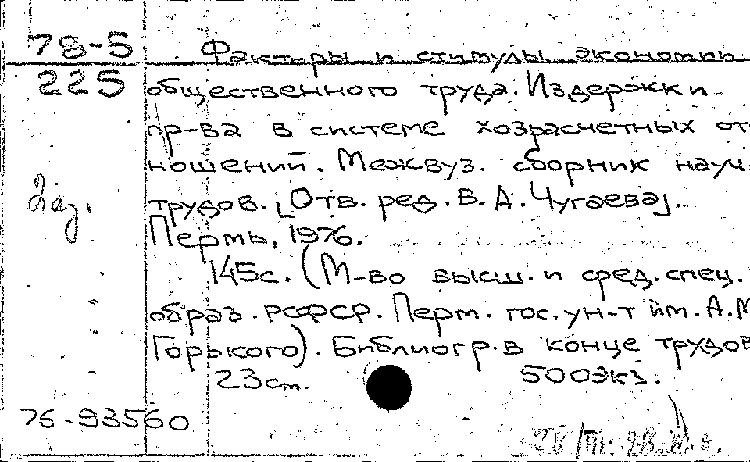 78-5
225
Факторы и стимулы экономии
общественного труда. Издержки
пр-ва в системе хозрасчетных от-
ношений. Межвуз. сборник науч.
трудов. [Отв. ред. В. А. Чугаева].
Пермь, 1976.
145с. (М-во высш. и сред. спец.
образ. РСФСР. Перм. гос. ун-т им. А.М.
Горького). Библиогр. в конце трудов
23см. 500экз.
76-93560